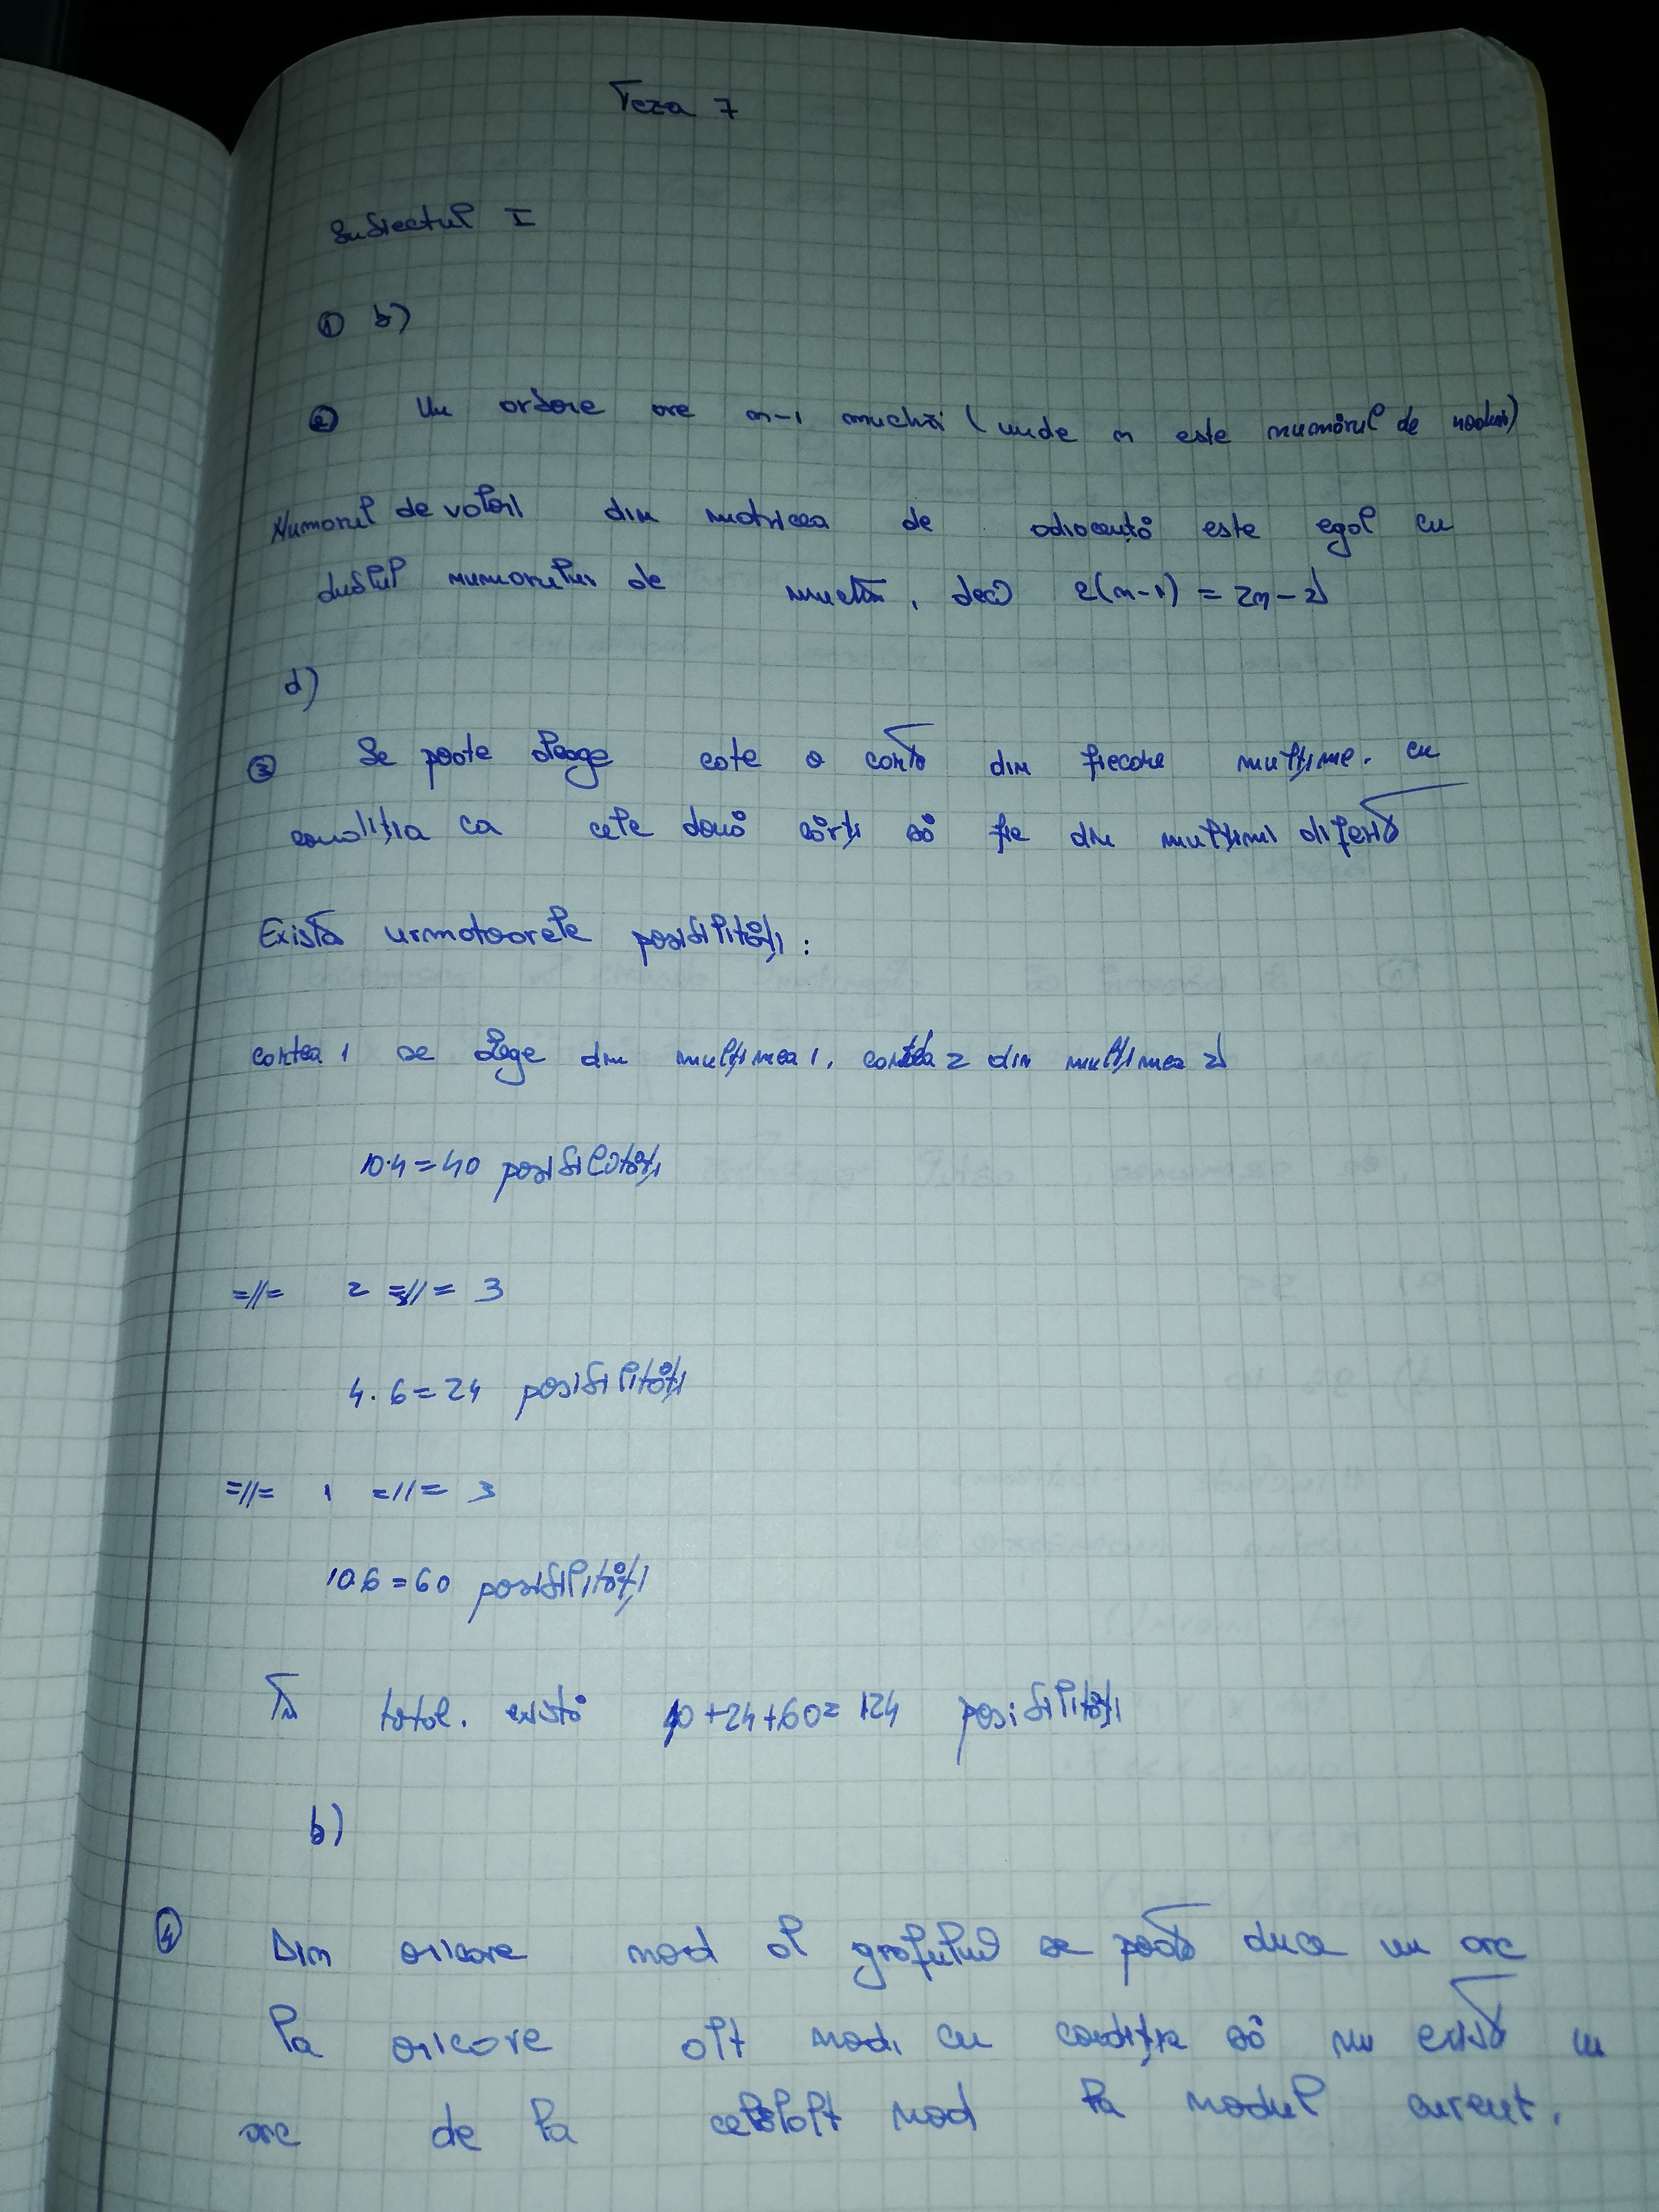 Teza 7
Subiectul I
① b)
② Un arbore are n-1 muchii (unde n este numărul de noduri)
Numărul de valori din matricea de adiacență este egal cu
dublul numărului de muchii, deci 2(n-1) = 2n-2
d)
③ Se poate alege câte o carte din fiecare mulțime, cu
condiția ca cele două cărți să fie din mulțimi diferite
Există urmatoarele posibilități:
cartea 1 se alege din mulțimea 1, cartea 2 din mulțimea 2
10·4=40 posibilități
=//= 2 =//= 3
4·6=24 posibilități
=//= 1 =//= 3
10·6=60 posibilități
În total, există 40+24+60=124 posibilități
b)
④ Din oricare nod al grafului se poate duce un arc
la oricare alt nod, cu condiția să nu existe un
arc de la celălalt nod la nodul curent.